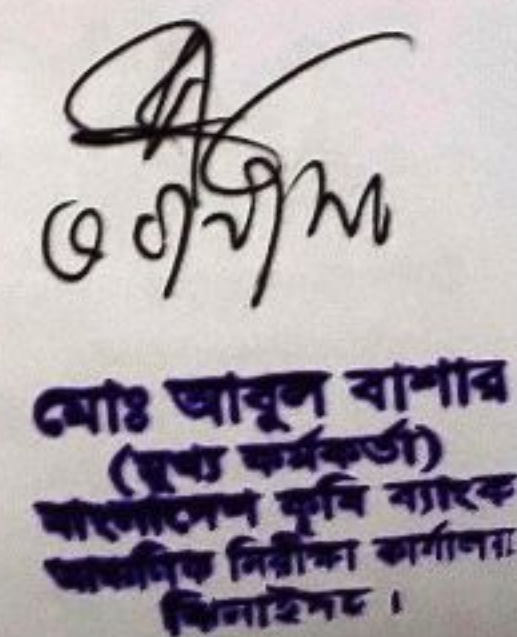 মোঃ আবুল বাশার
(মূখ্য কর্মকর্তা)
বাংলাদেশ কৃষি ব্যাংক
আঞ্চলিক নিরীক্ষা কার্যালয়
ঝিনাইদহ।